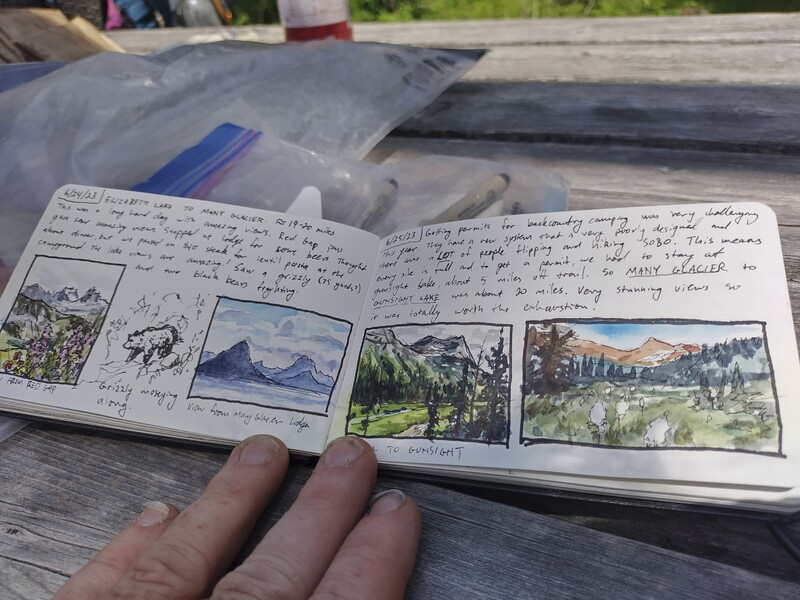 6/24/23 ELIZABETH LAKE TO MANY GLACIER. 19-20 miles
This was a long hard day with amazing views. Red Gap pass
gave some amazing views. Stopped at lodge for some beers. Thought
about dinner but we passed on $60 steak for lentil pasta at the
campground. The lake views are amazing! Saw a grizzly (75 yards)
and two black bears fighting.
FROM RED GAP
Grizzly moseying
along.
View from Many Glacier Lodge
6/25/23 Getting permits for backcountry camping was very challenging
this year. They have a new system that is very poorly designed and
there was a LOT of people flipping and hiking SOBO. This means
every site is full and to get a permit, we had to stay at
Gunsight Lake about 5 miles off trail. So MANY GLACIER to
GUNSIGHT LAKE was about 20 miles. Very stunning views so
it was totally worth the exhaustion.
TO GUNSIGHT